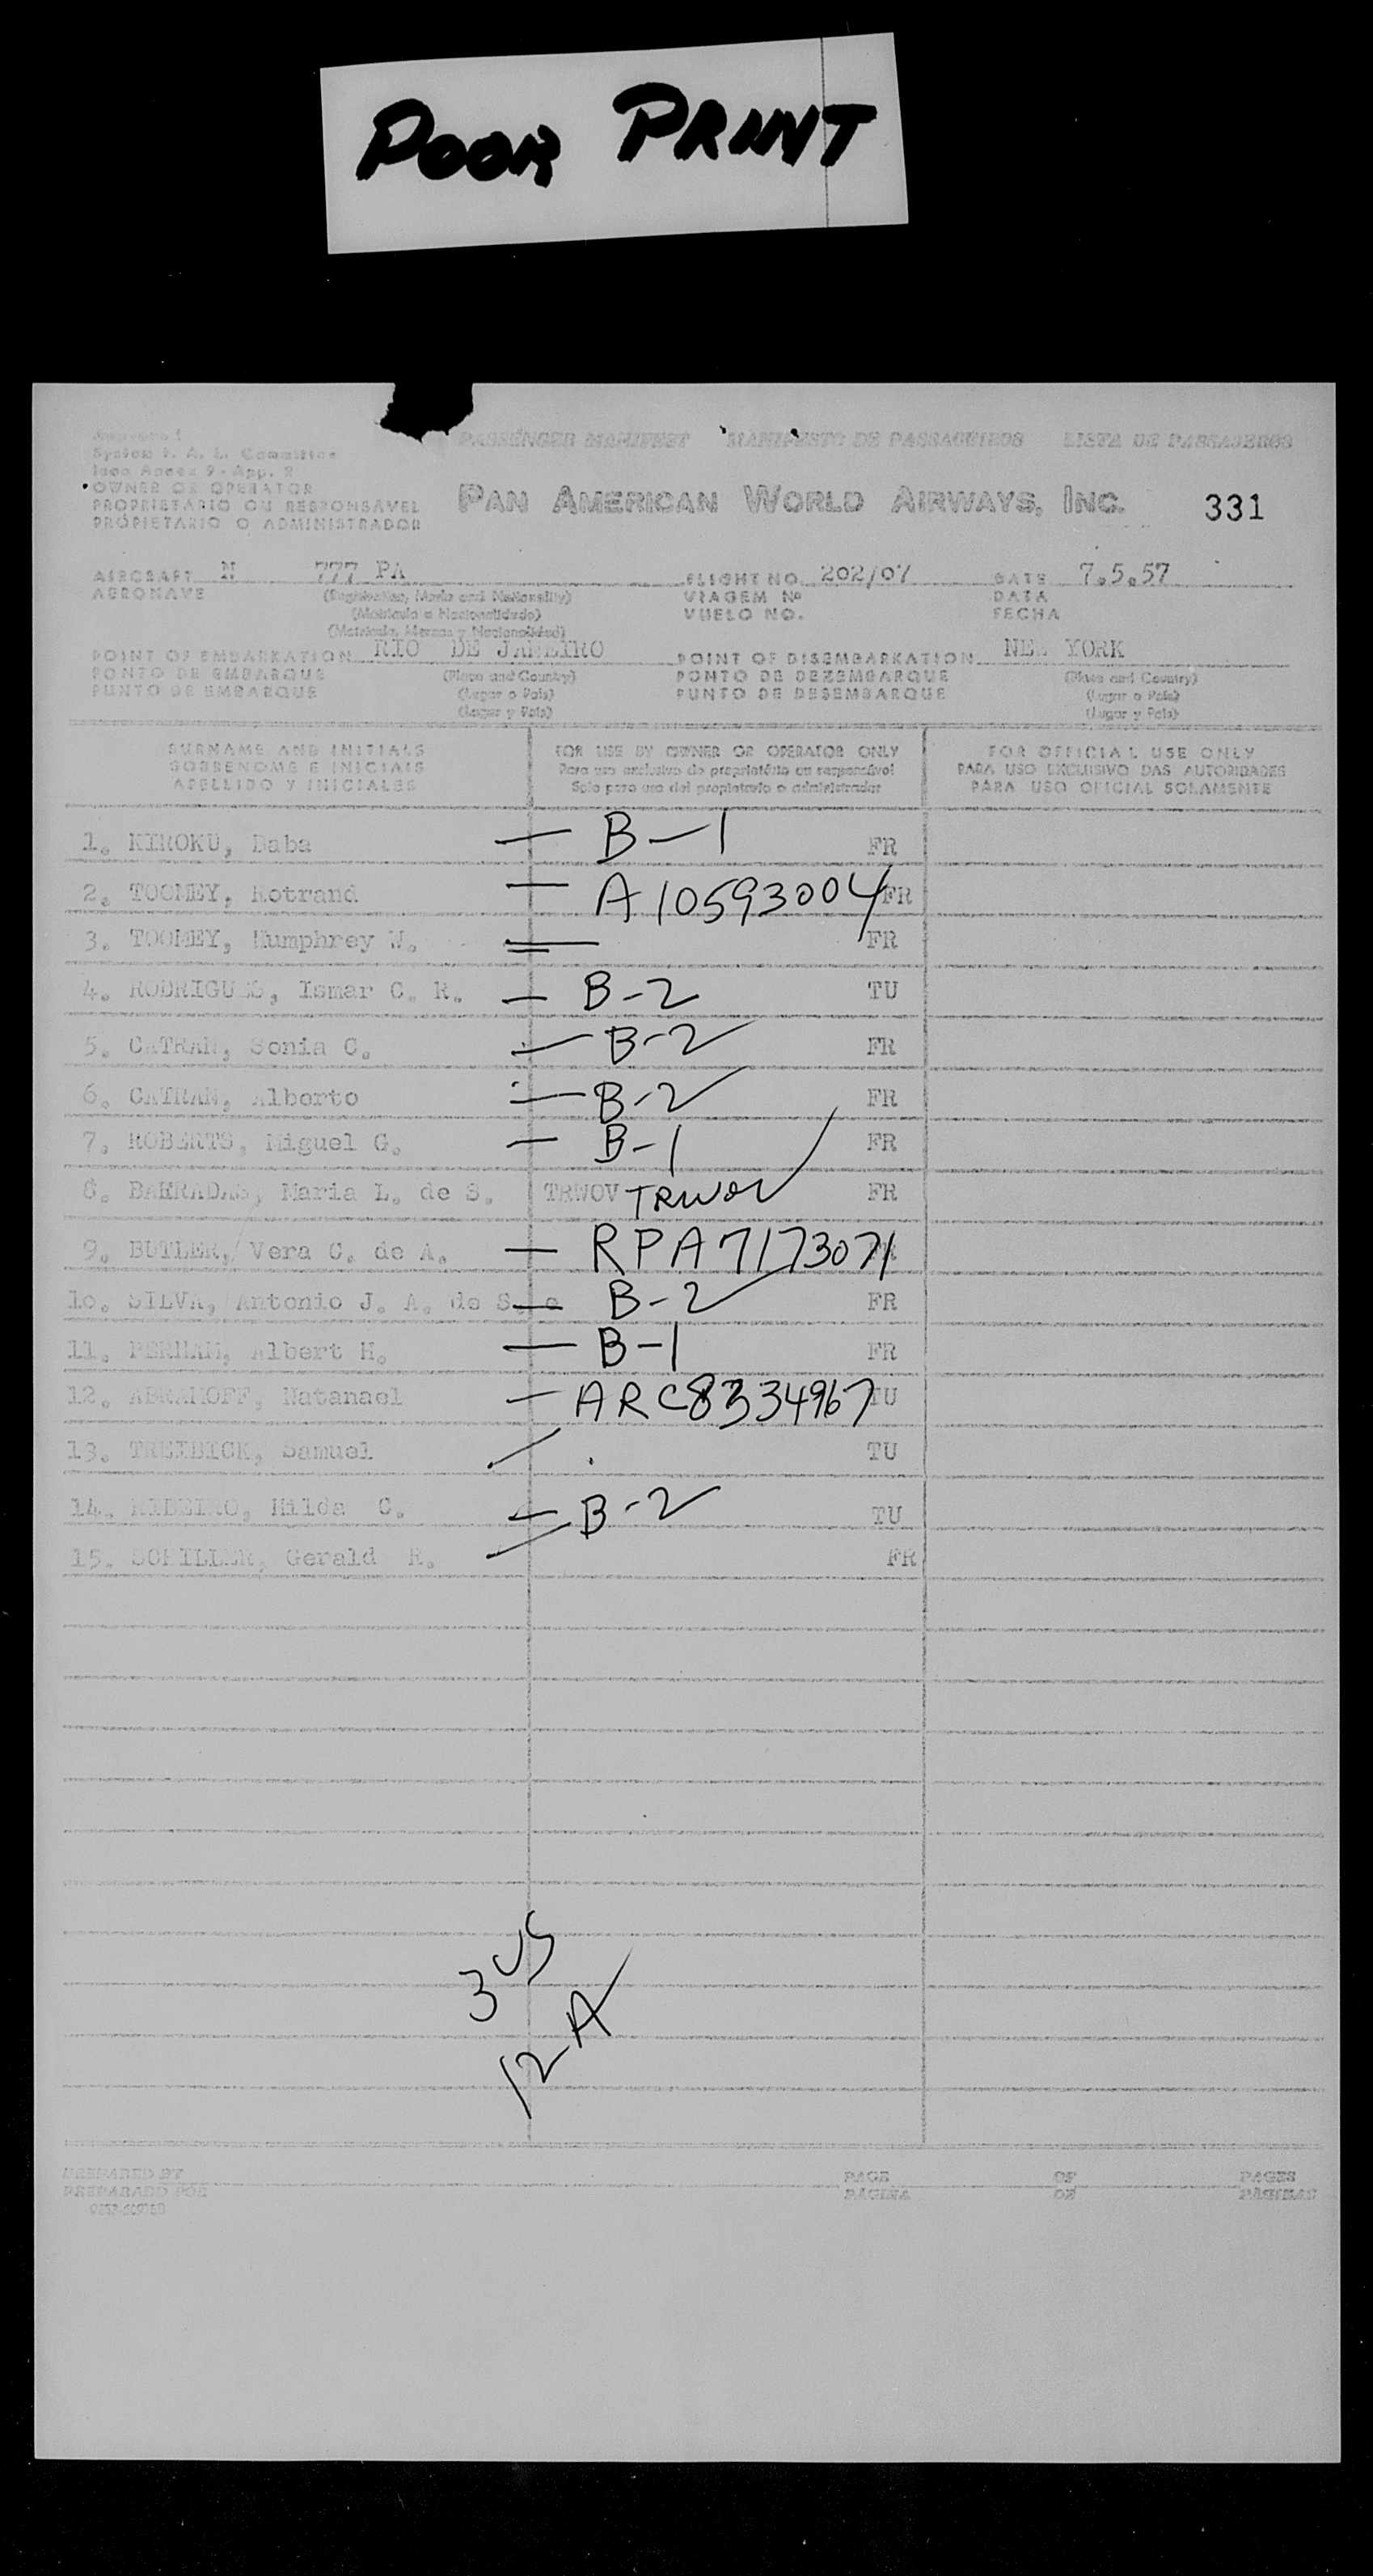 POOR PRINT
PASSENGER MANIFEST MANIFESTO DE PASSAGEIROS LISTA DE PASAJEROS
System F. A. L. Committee
Icao Annex 9 - App. 2
OWNER OR OPERATOR
PROPRIETARIO OU RESPONSÁVEL
PROPIETARIO O ADMINISTRADOR
PAN AMERICAN WORLD AIRWAYS, INC. 331
AIRCRAFT N 777 PA FLIGHT NO. 202/07 DATE 7.5.57
AERONAVE (Registration, Marks and Nationality) VIAGEM Nº DATA
(Matrícula e Nacionalidade) VUELO NO. FECHA
(Matrícula, Marcas y Nacionalidad)
POINT OF EMBARKATION RIO DE JANEIRO POINT OF DISEMBARKATION NEW YORK
PONTO DE EMBARQUE (Place and Country) PONTO DE DEZEMBARQUE (Place and Country)
PUNTO DE EMBARQUE (Lugar o País) PUNTO DE DESEMBARQUE (Lugar o País)
(Lugar y País) (Lugar y País)
SURNAME AND INITIALS FOR USE BY OWNER OR OPERATOR ONLY FOR OFFICIAL USE ONLY
SOBRENOME E INICIAIS Para uso exclusivo do proprietário ou responsável PARA USO EXCLUSIVO DAS AUTORIDADES
APELLIDO Y INICIALES Solo para uso del propietario o administrador PARA USO OFICIAL SOLAMENTE
1. KIROKU, Baba — B-1 FR
2. TOOMEY, Rotrand — A10593004 FR
3. TOOMEY, Humphrey W. FR
4. RODRIGUES, Ismar C. R. — B-2 TU
5. CATRAN, Sonia C. — B-2 FR
6. CATRAN, Alberto — B-2 FR
7. ROBERTS, Miguel G. — B-1 FR
8. BARRADAS, Maria L. de S. TRWOV TRWOV FR
9. BUTLER, Vera C. de A. — RPA7173071 FR
10. SILVA, Antonio J. A. de S. e — B-2 FR
11. PERHAM, Albert H. — B-1 FR
12. ABRAMOFF, Natanael — ARC8334967 TU
13. TREIBICK, Samuel TU
14. RIBEIRO, Hilda C. — B-2 TU
15. SCHILLER, Gerald R. FR
3 US
12 A
PREPARED BY PAGE OF PAGES
PREPARADO POR PÁGINA DE PÁGINAS